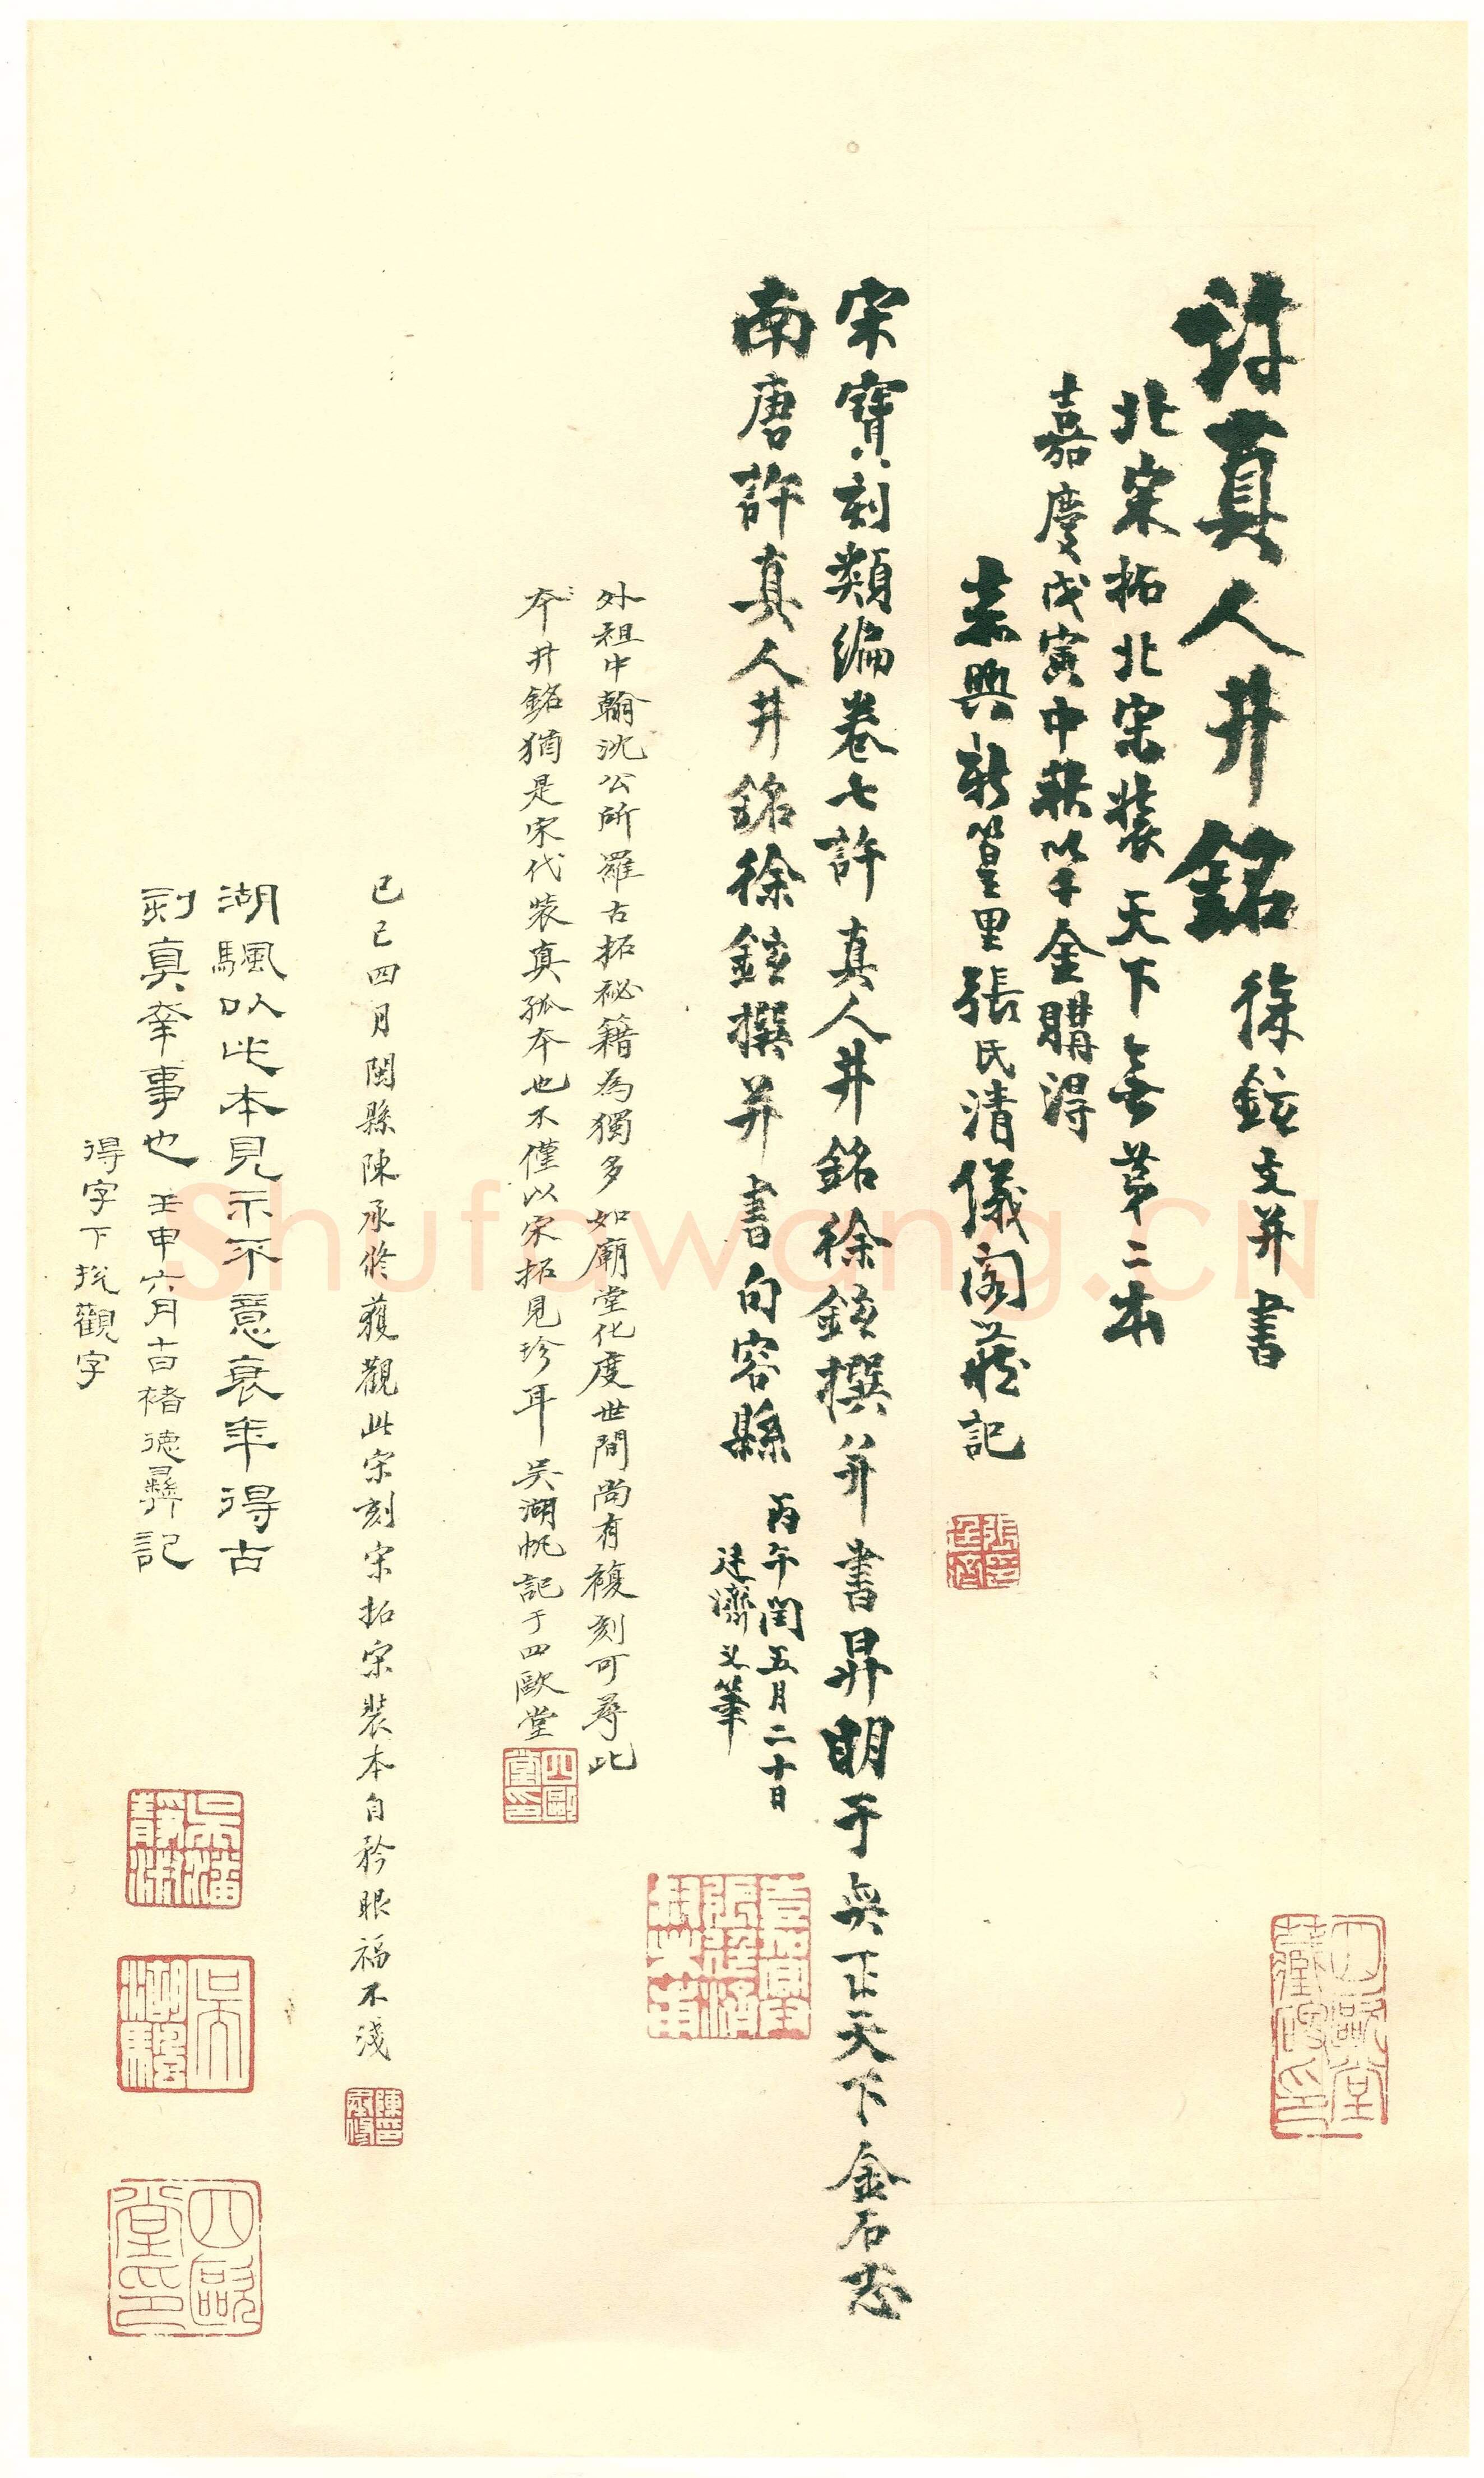 許真人井銘 徐鉉文并書
北宋拓北宋裝天下無第二本
嘉慶戊寅中秋以十金購得
嘉興新篁里張氏清儀閣藏記
宋寶刻類編卷七許真人井銘徐鉉撰并書昇明于奕正天下金石志
南唐許真人井銘徐鉉撰并書句容縣
丙午閏五月二十日
廷濟又筆
外祖中翰沈公所羅古拓祕籍為獨多如廟堂化度世間尚有複刻可尋此
本井銘猶是宋代裝真孤本也不僅以宋拓見珍耳 吳湖帆記于四歐堂
四歐堂印
己巳四月閩縣陳承修獲觀此宋刻宋拓宋裝本自矜眼福不淺
陳承修印
湖颿以此本見示不意衰年得古
刻真奎事也 壬申六月十日褚德彝記
得字下挩觀字
吳潘靜淑
吳湖颿
四歐堂印
Shufawang.CN